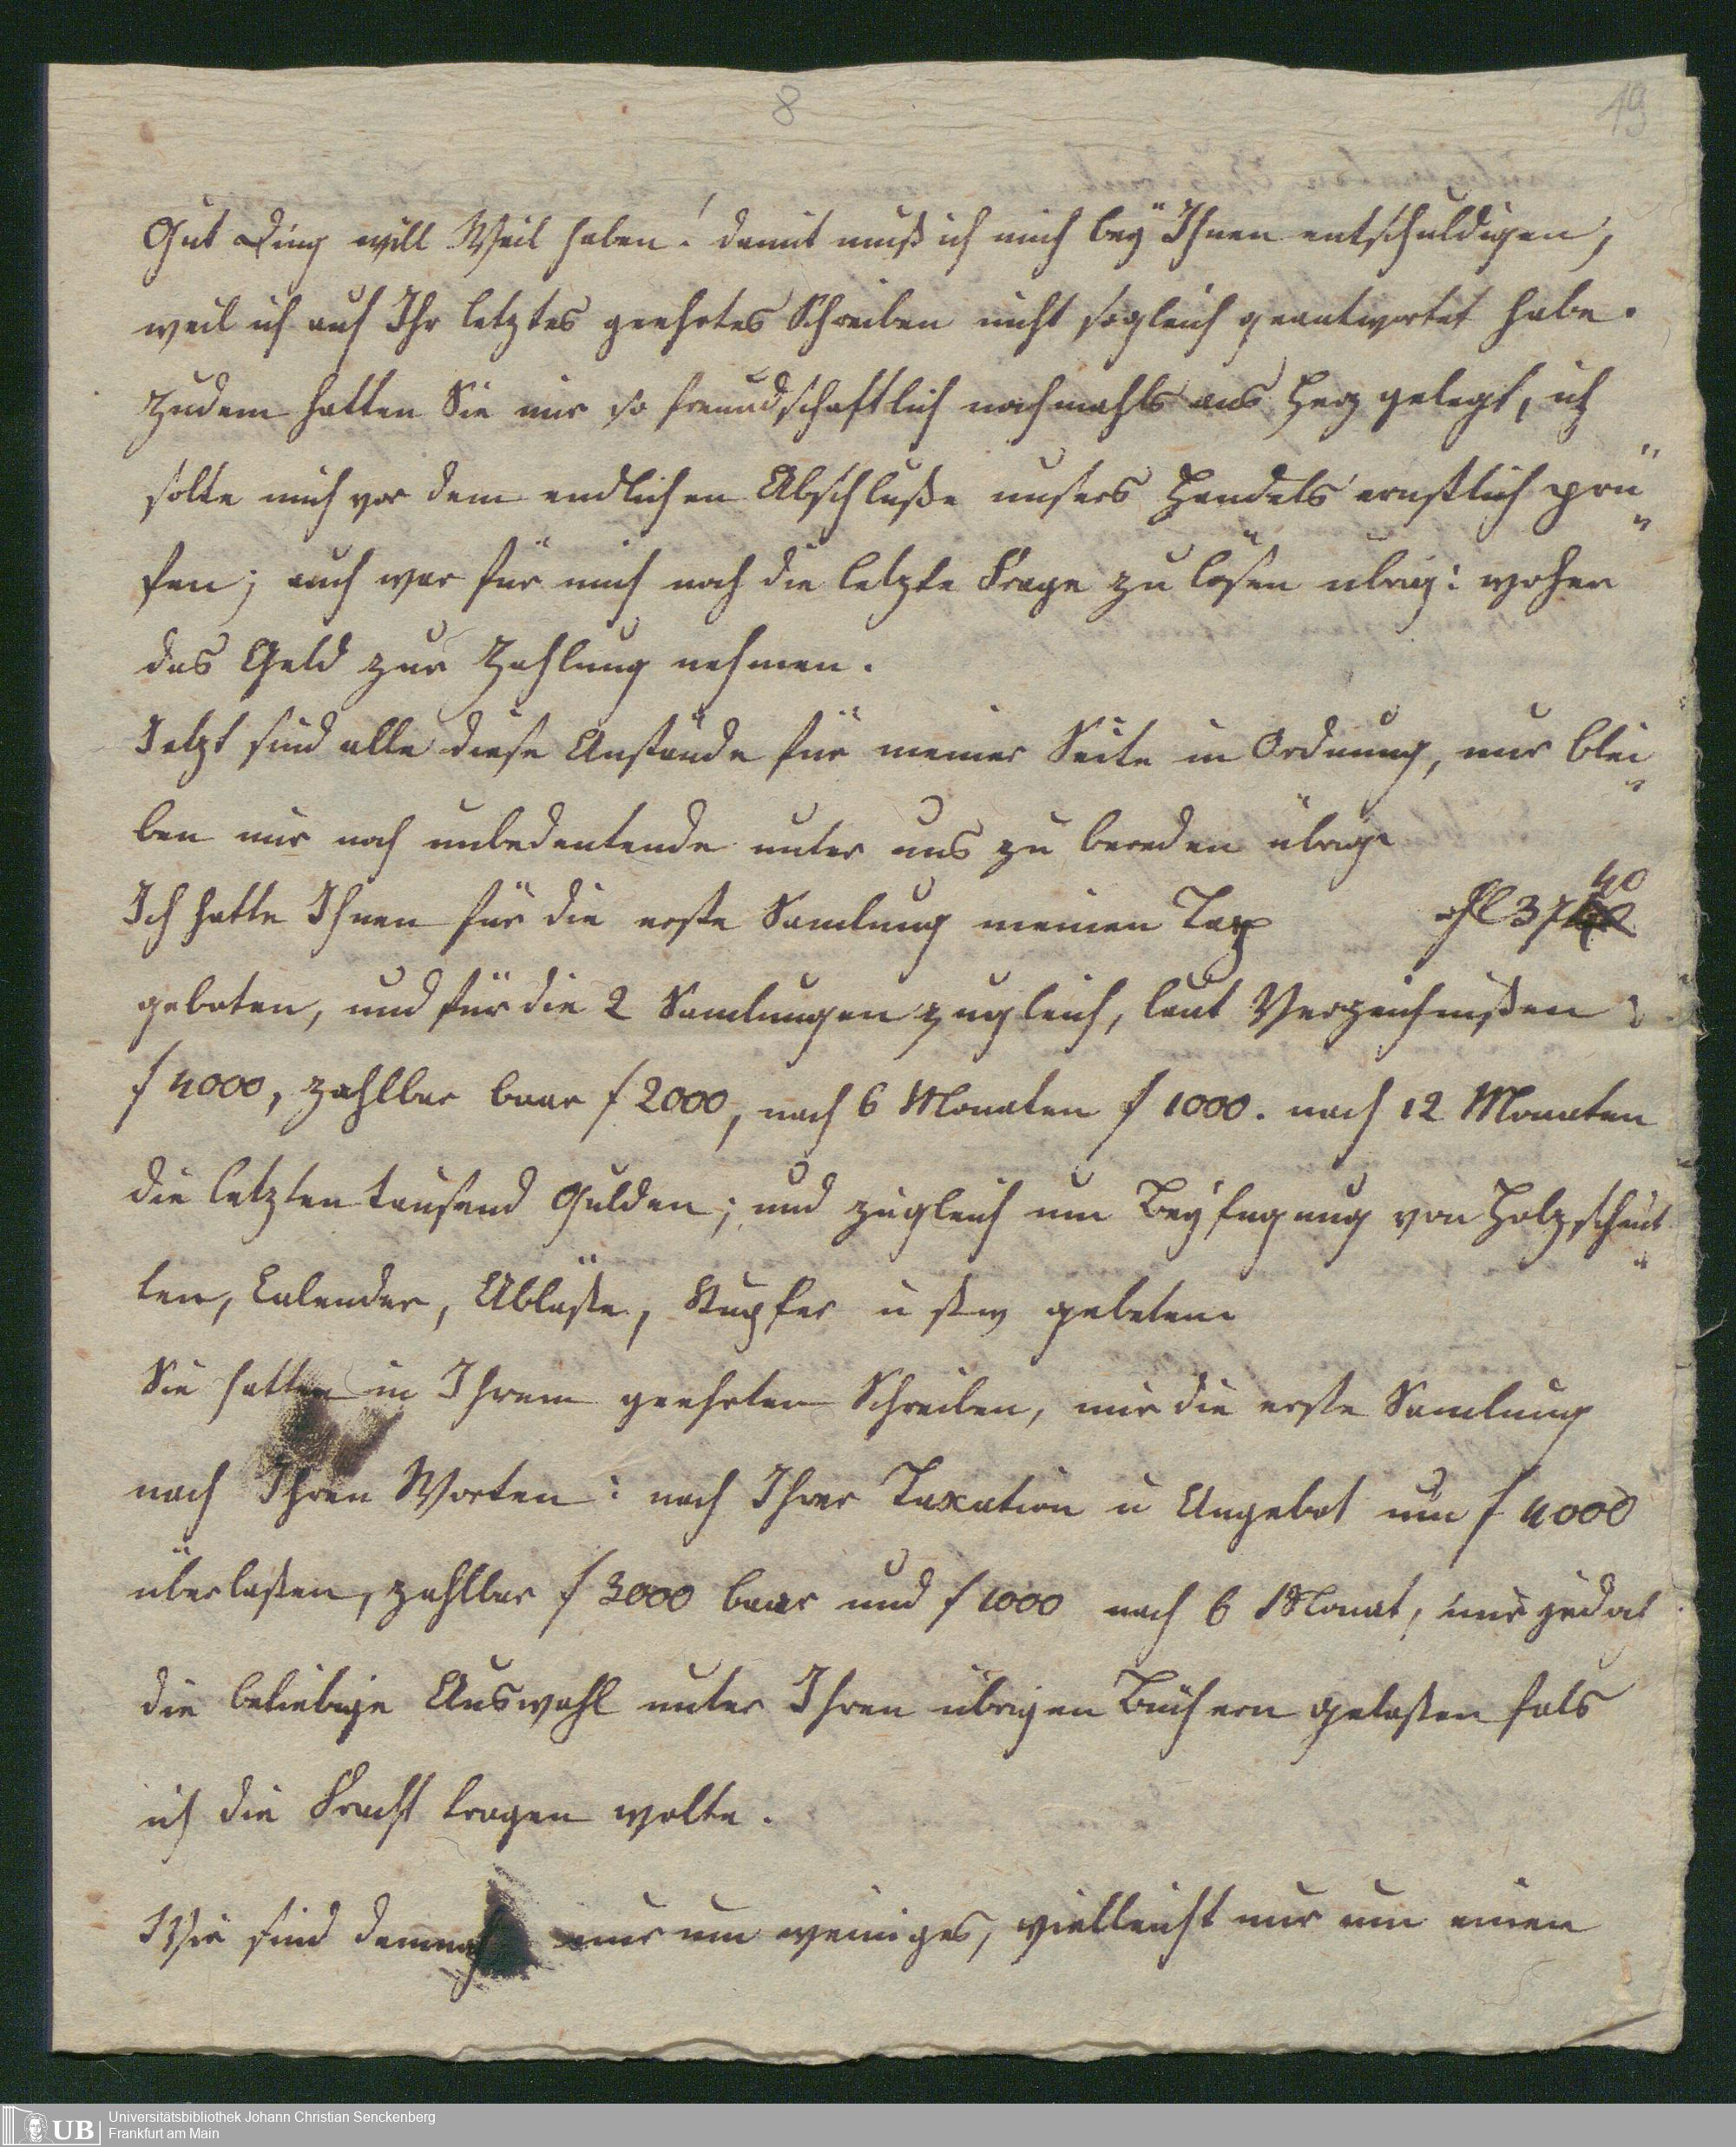 8
19
Gut Ding will Weil haben! damit muß ich mich bey Ihnen entschuldigen,
weil ich auf Ihr letztes geehrtes Schreiben nicht sogleich geantwortet habe.
Zudem hatten Sie mir so freundschaftlich nochmahls ans Herz gelegt, ich
solte mich vor dem endlichen Abschluße unsers Handels ernstlich prü
fen; auch war für mich noch die letzte Frage zu lösen übrig: woher
das Geld zur Zahlung nehmen.
Jetzt sind alle diese Anstände für meiner Seite in Ordnung, nur blei
ben mir noch unbedeutende unter uns zu bereden übrig.
Ich hatte Ihnen für die erste Samlung meinen Tax fl 3740
geboten, und für die 2 Samlungen zugleich, laut Verzeichnißen
f 4000, zahlbar baar f 2000, nach 6 Monaten f 1000. nach 12 Monaten
die letzten tausend Gulden; und zugleich um Beyfugung von Holzschnit
ten, Calender, Abläße, Kupfer u sw gebeten.
Sie hatten in Ihrem geehrten Schreiben, mir die erste Samlung
nach Ihren Worten: nach Ihrer Taxation u Angebot um f 4000
überlaßen, zahlbar f 3000 baar und f 1000 nach 6 Monat, mir jedoch
die beliebige Auswahl unter Ihren übrigen Büchern gelaßen fals
ich die Fracht tragen wolte.
Wir sind demnach nur um weniges, vielleicht nur um einen
UB
Universitätsbibliothek Johann Christian Senckenberg
Frankfurt am Main